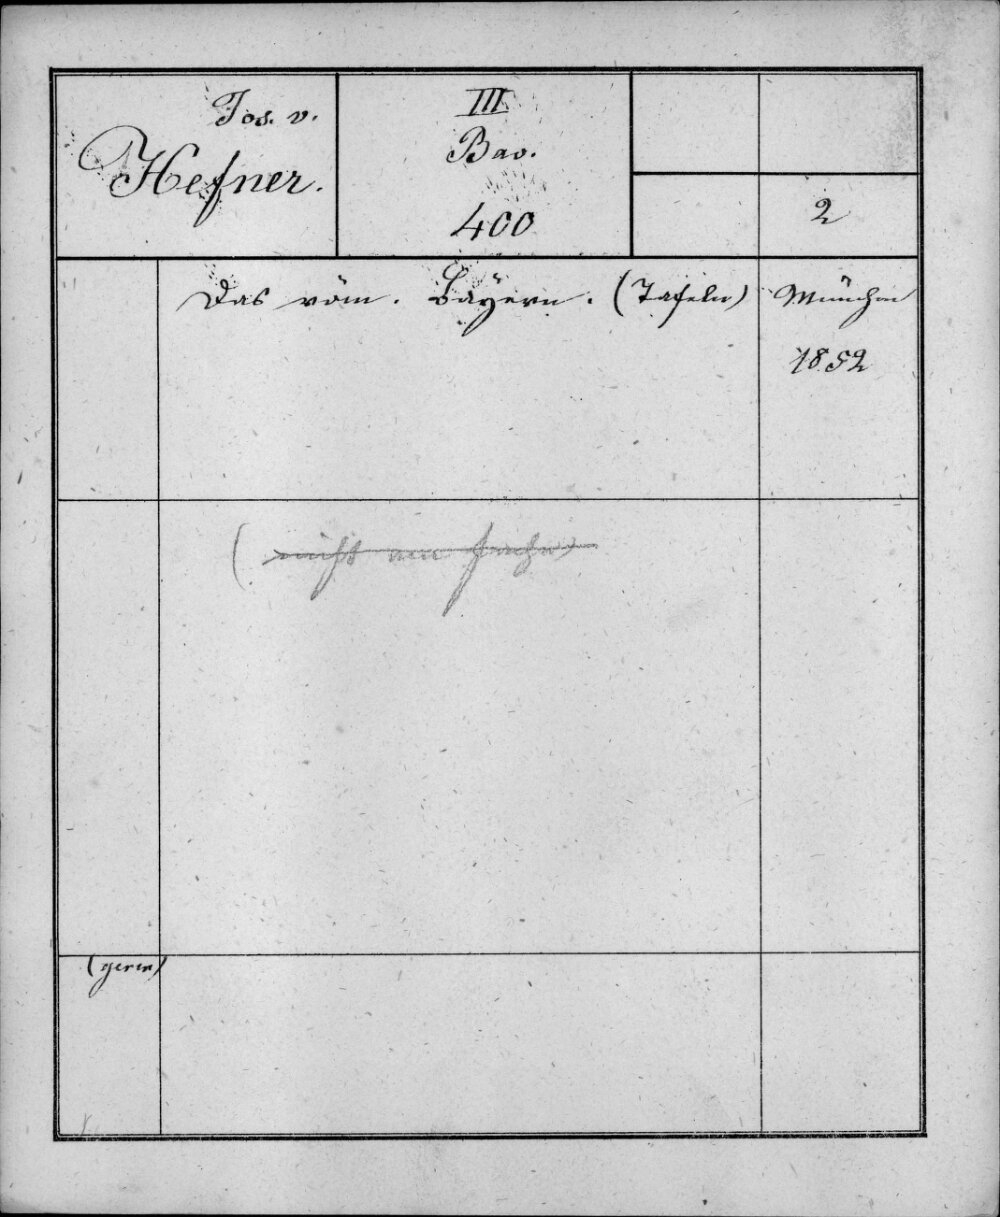 Jos. v.
Hefner.
III
Bav.
400
2
Das röm. Bayern. (Tafeln)
München
1852
(nicht am